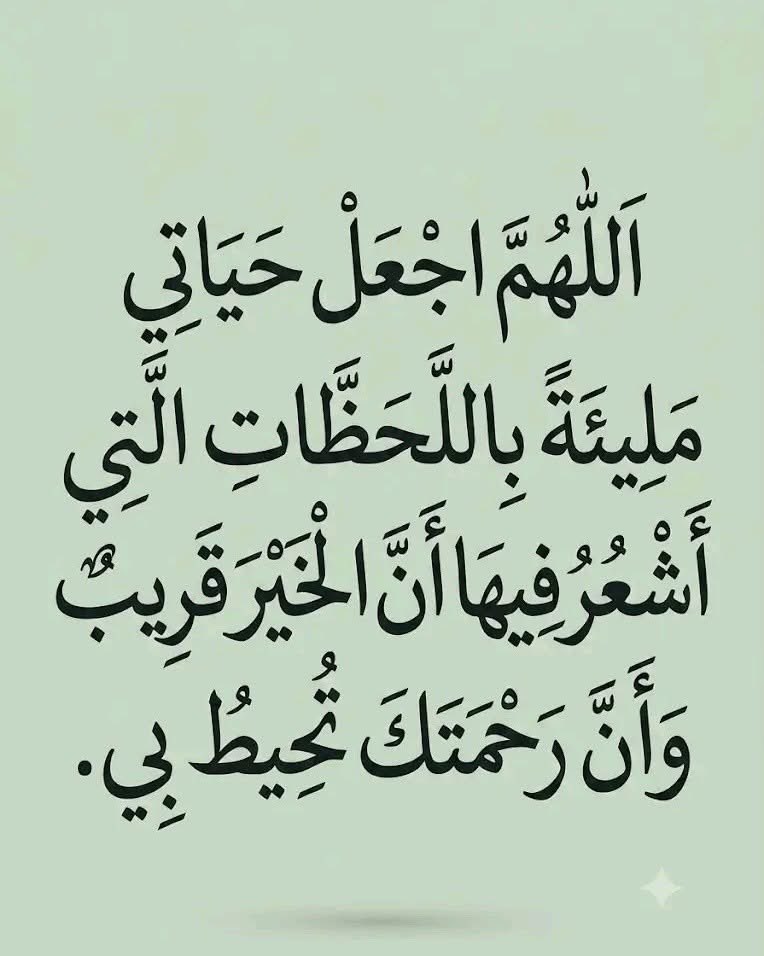 اَللّٰهُمَّ اجْعَلْ حَيَاتِي
مَلِيئَةً بِاللَّحَظَّاتِ الَّتِي
أَشْعُرُ فِيهَا أَنَّ الْخَيْرَ قَرِيبٌ
وَأَنَّ رَحْمَتَكَ تُحِيطُ بِي.